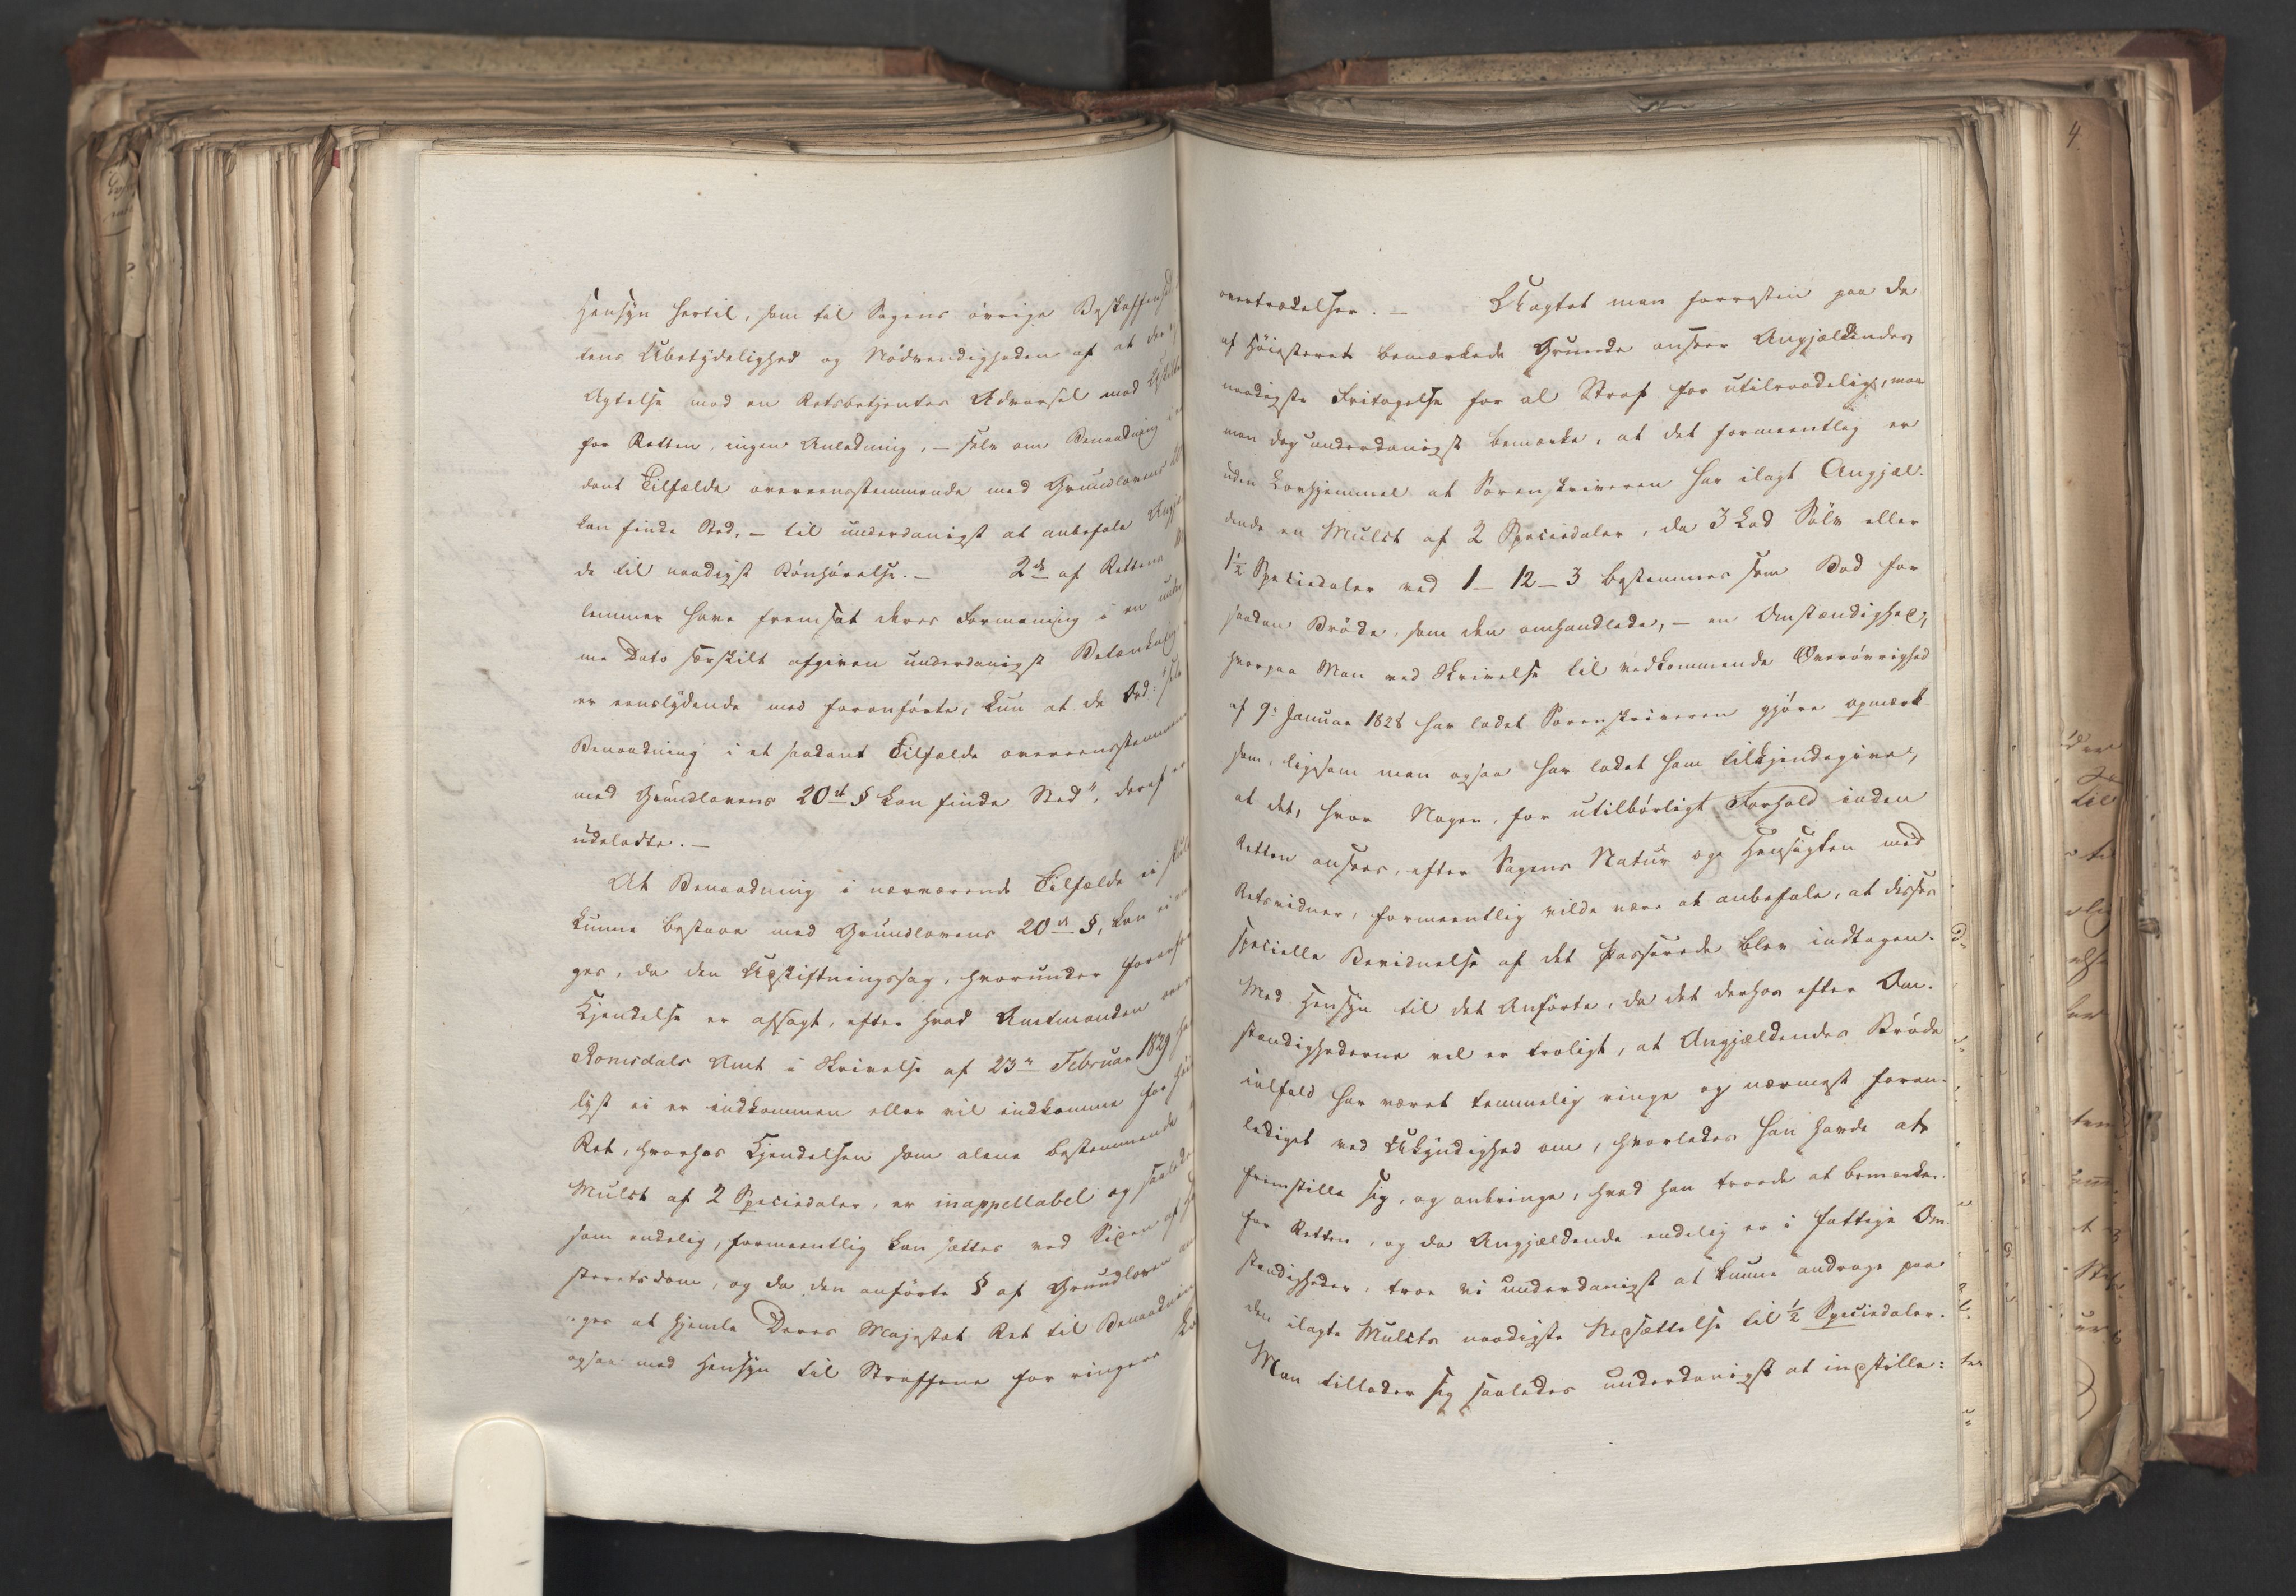 Hensyn hertil, som til Sagens övrige Beskaffenhed
tens Ubetydelighed og Nödvendigheden af at der
Agtelse mod en Retsbetjentes Advarsel mod
for Retten, ingen Anledning, – selv om Benaadning i
dant Tilfælde overeensstemmende med Grundlovens
kan finde Sted, – til underdanigst at anbefale Angjæl
de til naadigst Bönhörelse. – 2de af Rettens
lemmer have fremsat deres Formening i en under
me Dato særskilt afgiven underdanigst Betænkning
er eenslydende med foranförte, kun at de Ord: "selv
Benaadning i et saadant Tilfælde overeensstemmen
med Grundlovens 20de § kan finde Sted", deraf er
udeladte. –
At Benaadning i nærværende Tilfælde ei skul
kunne bestaae med Grundlovens 20de §, kan ei
ges, da den Udskiftningssag, hvorunder foranför
Kjendelse er afsagt, efter hvad Amtmanden over
Romsdals Amt i Skrivelse af 23de Februar 1829 har
lyst ei er indkommen eller vil indkomme for Höie
Ret, hvorhos Kjendelsen som alene bestemmende
Mulct af 2 Speciedaler, er inappellabel og saaledes
som endelig, formeentlig kan sættes ved Siden af Hö
steretsdom, og da den anförte § af Grundloven
ges at hjemle Deres Majestæt Ret til Benaadning
ogsaa med Hensyn til Straffene for ringere
overtrædelser. – Uagtet man forresten paa de
af Höiesteret bemærkede Grunde anseer Angjældendes
naadigste Fritagelse for al Straf for utilraadelig, maa
man dog underdanigst bemærke, at det formeentlig er
uden Lovhjemmel at Sorenskriveren har ilagt Angjæl-
dende en Mulct af 2 Speciedaler, da 3 Lod Sölv eller
1½ Speciedaler ved 1–12–3 bestemmes som Bod for
saadan Bröde, som den omhandlede, – en Omstændighed,
hvorpaa Man ved Skrivelse til vedkommende Överövrighed
af 9de Januar 1828 har ladet Sorenskriveren gjöre opmærk-
som, ligesom man ogsaa har ladet ham tilkjendegive,
at det, hvor Nogen, for utilbörligt Forhold inden
Retten ansees, efter Sagens Natur og Hensigten med
Retsvidner, formeentlig vilde være at anbefale, at disses
specielle Bevidnelse af det Passerede blev indtagen.
Med Hensyn til det Anförte, da det derhos efter Om-
stændighederne vel er troligt, at Angjældendes Bröde
ialfald har været temmelig ringe og nærmest foran-
lediget ved Ukyndighed om, hvorledes han havde at
fremstille sig, og anbringe, hvad han troede at bemærke
for Retten, og da Angjældende endelig er i fattige Om-
stændigheder, troe vi underdanigst at kunne andrage paa
den ilagte Mulcts naadigste Nedsættelse til ½ Speciedaler.
Man tillader sig saaledes underdanigst at indstille: